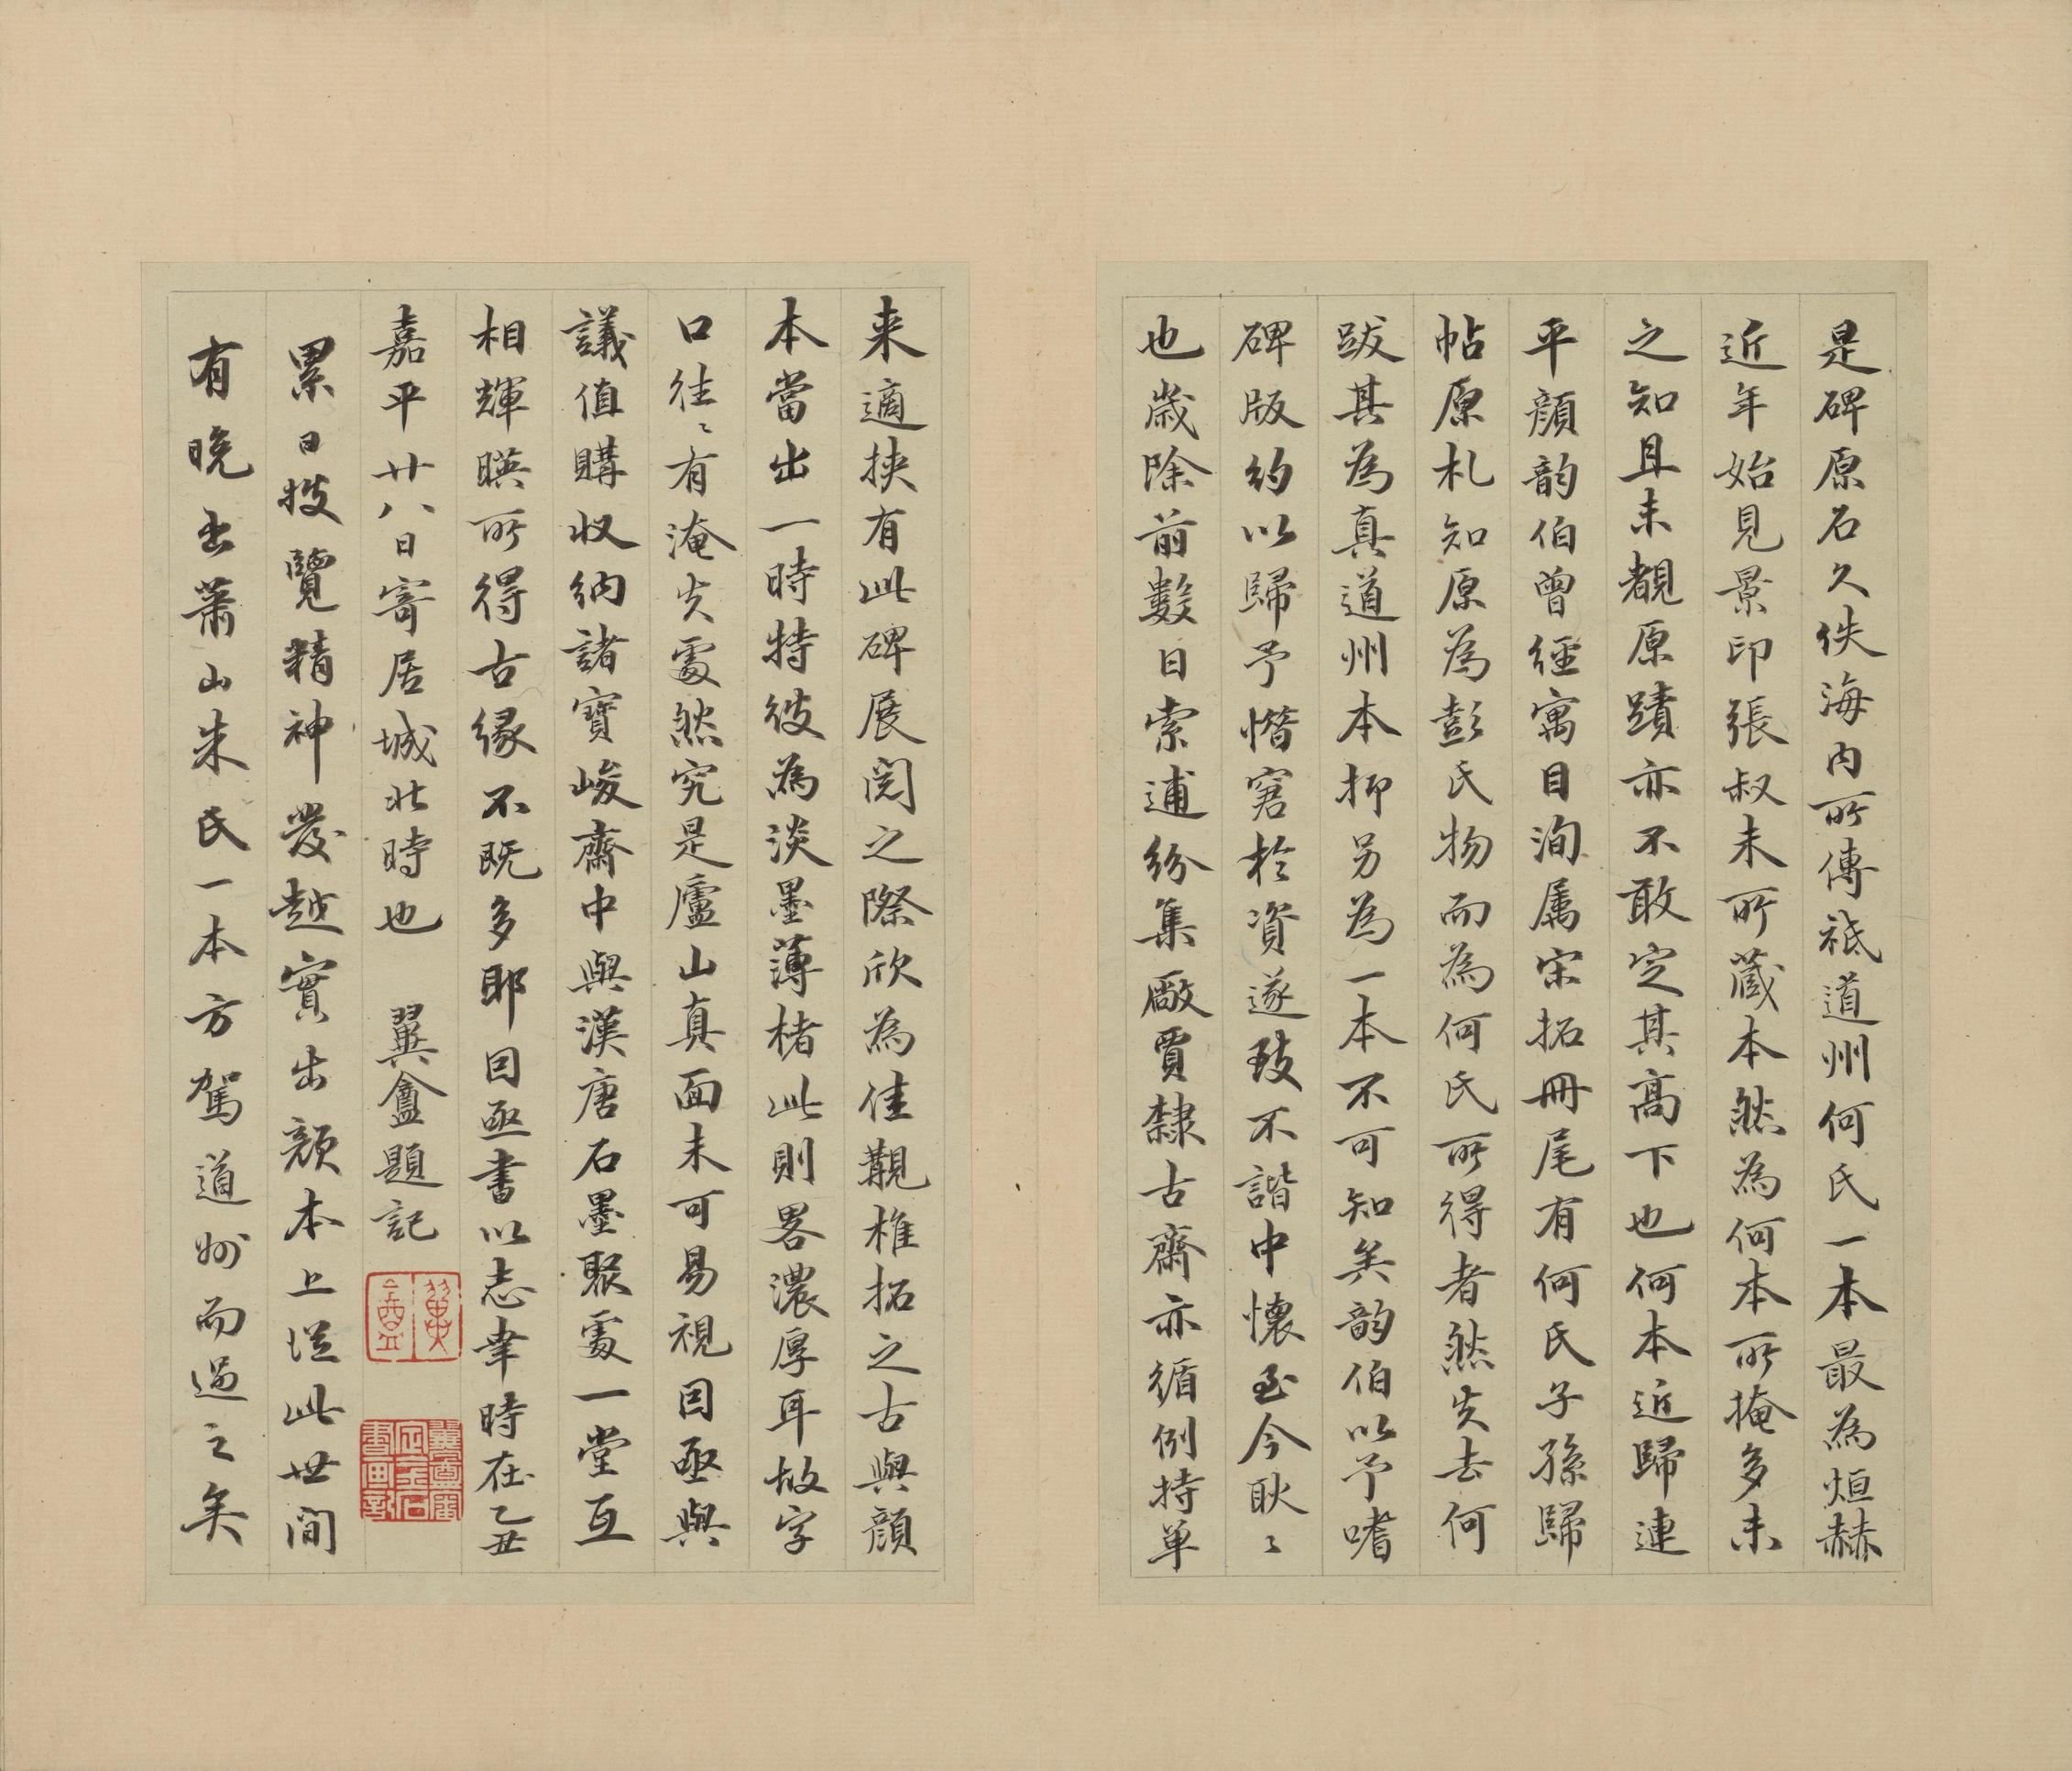 是碑原石久佚海内所傳祗道州何氏一本最為烜赫
近年始見景印張叔未所藏本然為何本所掩多未
之知且未覩原蹟亦不敢定其高下也何本近歸連
平顏韵伯曾經寓目洵屬宋拓冊尾有何氏子孫歸
帖原札知原為彭氏物而為何氏所得者然失去何
跋其為真道州本抑另為一本不可知矣韵伯以予嗜
碑版約以歸予惜窘於資遂致不諧中懷至今耿〻
也歲除前數日索逋紛集廠賈隸古齋亦循例持單
来適挾有此碑展閱之際欣為佳覯椎拓之古與顏
本當出一時特彼為淡墨薄楮此則畧濃厚耳故字
口往〻有淹失處然究是廬山真面未可易視因亟與
議值購收納諸寶峻齋中與漢唐石墨聚處一堂互
相輝暎所得古緣不既多耶因亟書以志幸時在乙丑
嘉平廿八日寄居城北時也 翼盦題記
翼盦
翼盦審定金石書畫記
累日披覽精神發越實出顏本上從此世間
有晚出蕭山朱氏一本方駕道州而過之矣